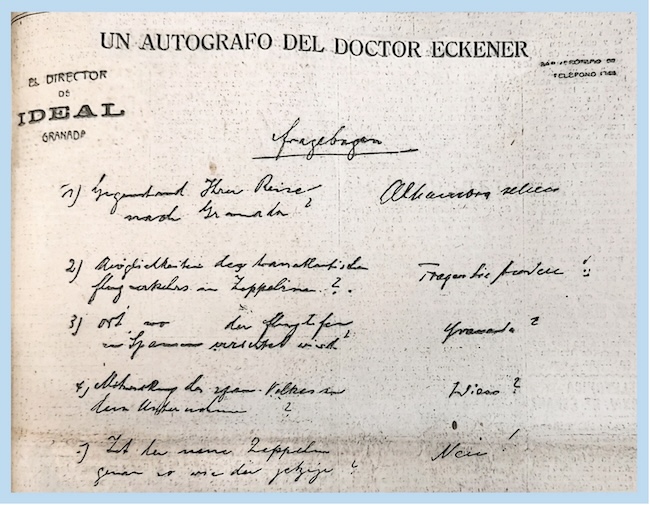 UN AUTOGRAFO DEL DOCTOR ECKENER
EL DIRECTOR
DE
IDEAL
GRANADA
SAN JERÓNIMO
TELÉFONO
Fragebogen
1) Gegenstand Ihrer Reise
nach Granada?
Alhambra sehen
2) Möglichkeiten des transatlantischen
Flugverkehrs in Zeppelinen?
Fragen Sie
3) Ort, wo der Flughafen
in Spanien errichtet wird?
Granada?
4) Mitwirkung des span. Volkes an
dem Unternehmen?
Wieso?
5) Ist der neue Zeppelin
genau so wie der jetzige?
Nein!